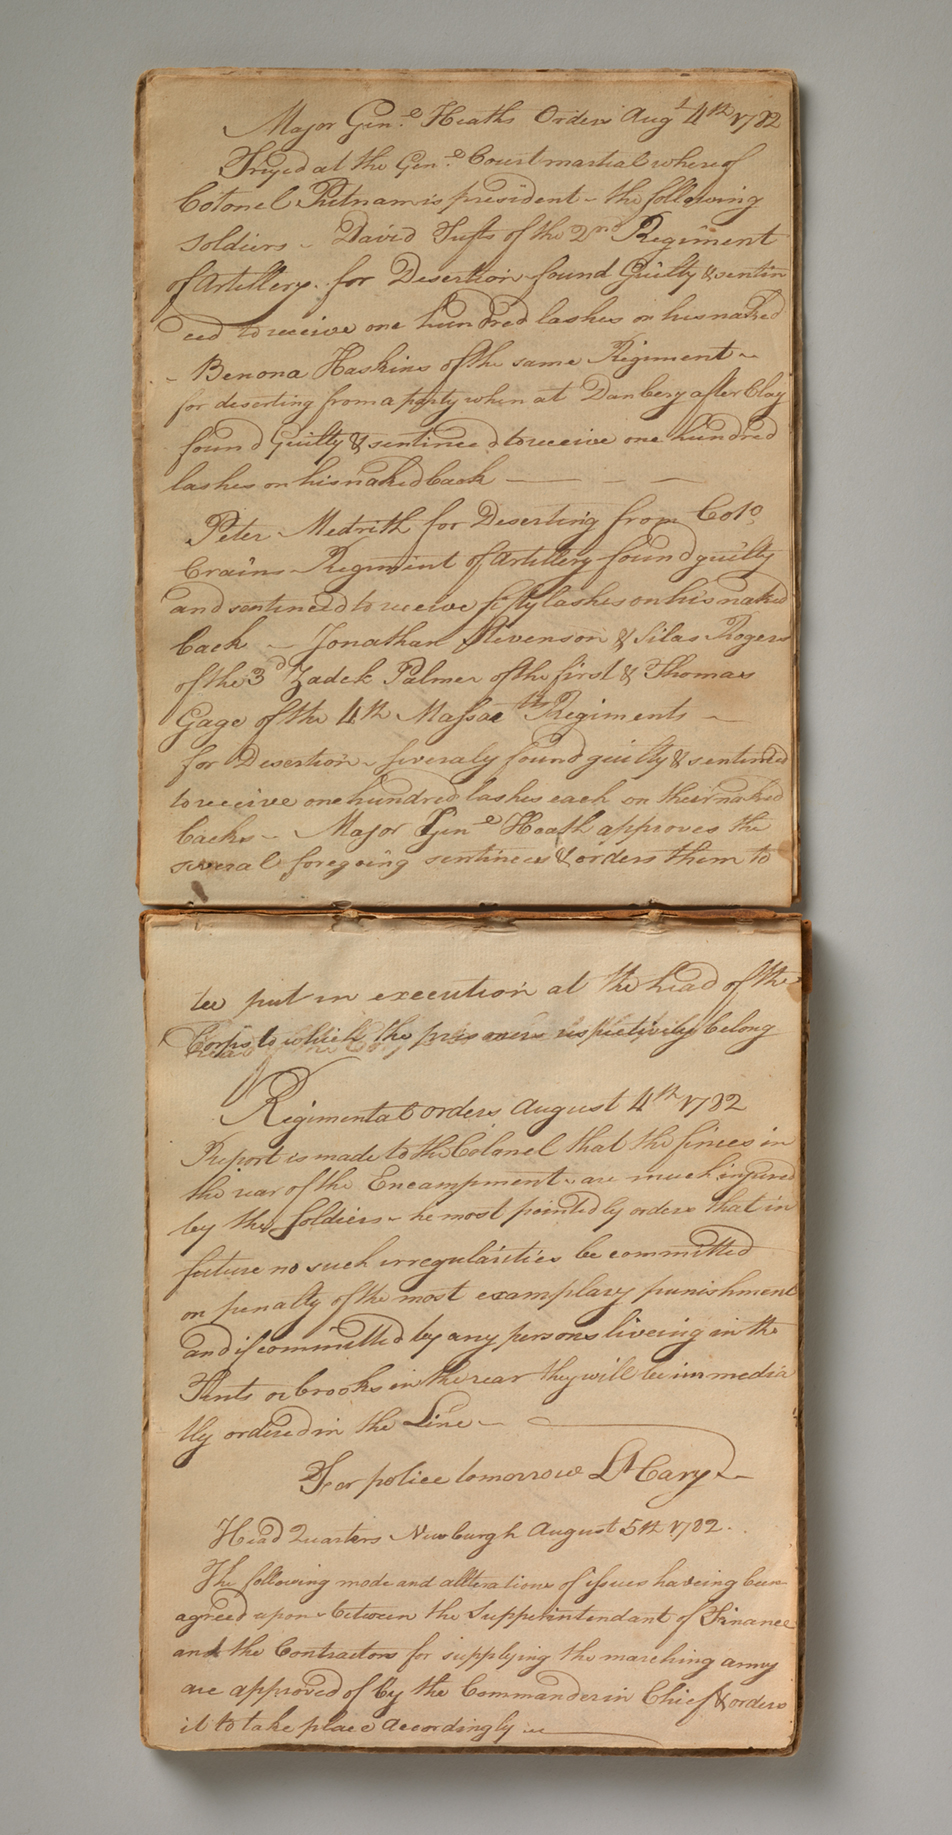 Major Gen.l Heaths Orders Augt 4th 1782
Tryed at the Gen.l Court martial whereof
Colonel Putnam is president - the following
Soldiers - David Tufts of the 2nd Regiment
of Artillery. for Desertion found Guilty & sentin
ced to receive one hundred lashes on his naked
- Benona Haskins of the same Regiment -
for deserting from a party when at Danbery after Clay
found Guilty & sentinced to receive one hundred
lashes on his naked back
Peter Medrith for Deserting from Colo
Crains Regiment of Artillery found guilty
and sentinced to receive fifty lashes on his naked
back - Jonathan Stevenson & Silas Rogers
of the 3d Zadek Palmer of the first & Thomas
Gage of the 4th Massachtts Regiments -
for Desertion - severaly found guilty & sentinced
to receive one hundred lashes each on their naked
backs - Major Genl Heath approves the
several foregoing sentinces & orders them to
be put in execution at the head of the
Corps to which the prisoners respectively belong
Regimental orders August 4th 1782
Report is made to the Colonel that the finces in
the rear of the Encampment are much injured
by the Soldiers - he most pointedly orders that in
future no such irregularities be committed
on penalty of the most examplary punishment
and if committed by any persons liveing in the
Tents or brooks in the rear they will be immedia
tly ordered in the Line -
For police tomorrow Lt Cary
Head Quarters Newburgh August 5th 1782.
The following mode and allterations of issues haveing been
agreed upon between the Supperintendant of Finance
and the Contractors for supplying the marching army
are approved of By the Commander in Chief & orders
it to take place accordingly